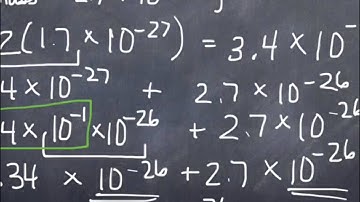 2(1.7 × 10⁻²⁷) = 3.4 × 10⁻
4 × 10⁻²⁷ + 2.7 × 10⁻²⁶
4 × 10⁻¹ × 10⁻²⁶ + 2.7 × 10⁻²⁶
.34 × 10⁻²⁶ + 2.7 × 10⁻²⁶